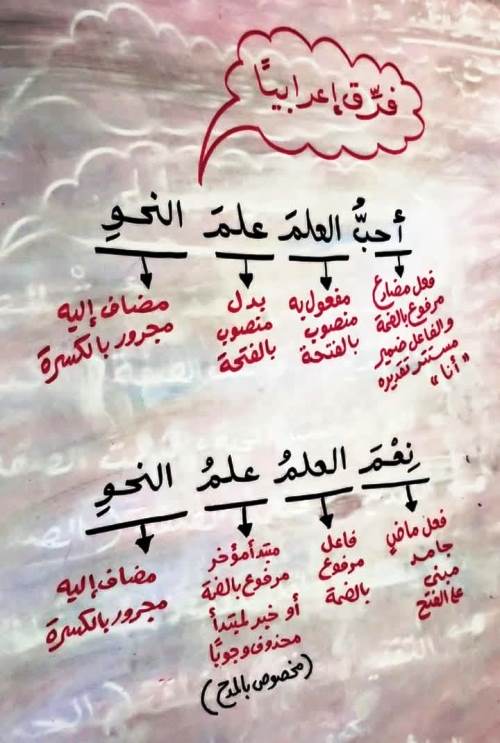 فرِّق إعرابيًّا
أحبُّ العلمَ علمَ النحوِ
فعل مضارع
مرفوع بالضمة
والفاعل ضمير
مستتر تقديره
"أنا"
مفعول به
منصوب
بالفتحة
بدل
منصوب
بالفتحة
مضاف إليه
مجرور بالكسرة
نِعْمَ العلمُ علمُ النحوِ
فعل ماضٍ
جامد
مبنى
على الفتح
فاعل
مرفوع
بالضمة
مبتدأ مؤخر
مرفوع بالضمة
أو خبر لمبتدأ
محذوف وجوبًا
(مخصوص بالمدح)
مضاف إليه
مجرور بالكسرة